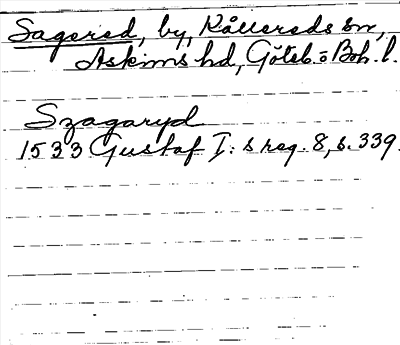 Sagered, by, Kållereds sn,
Askims hd, Göteb. o Boh. l.
Szagaryd
1533 Gustaf I:s reg. 8, s. 339.